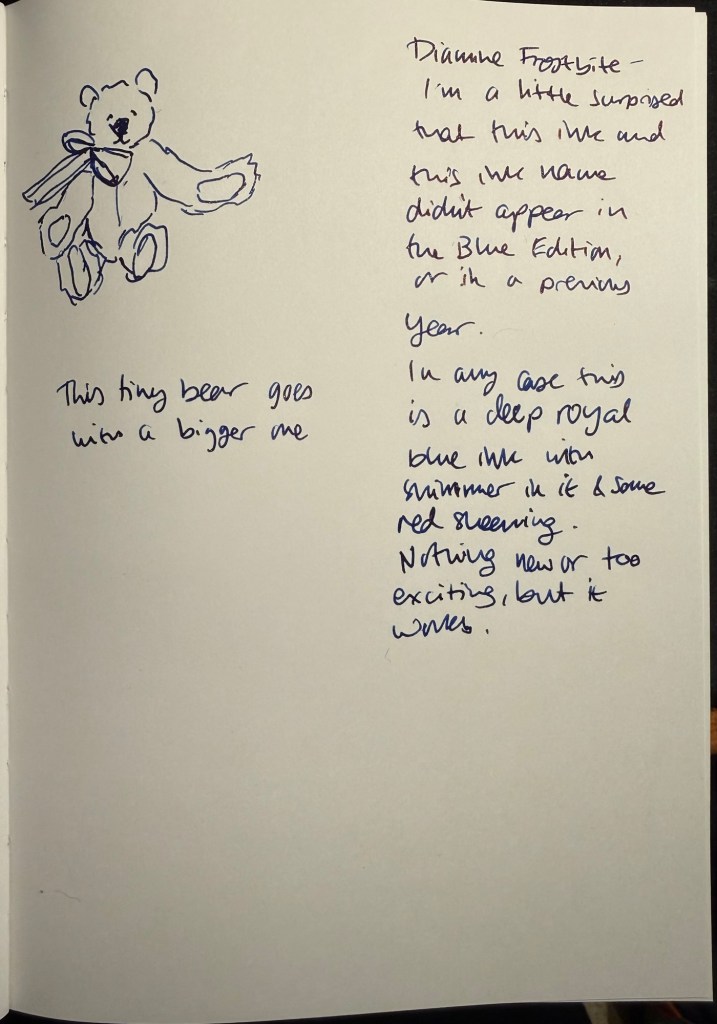 Diamine Frostbite -
I'm a little surprised
that this ink and
this ink name
didn't appear in
the Blue Edition,
or in a previous
year.
In any case this
is a deep royal
blue ink with
shimmer in it & some
red sheening.
Nothing new or too
exciting, but it
works.
This tiny bear goes
with a bigger one